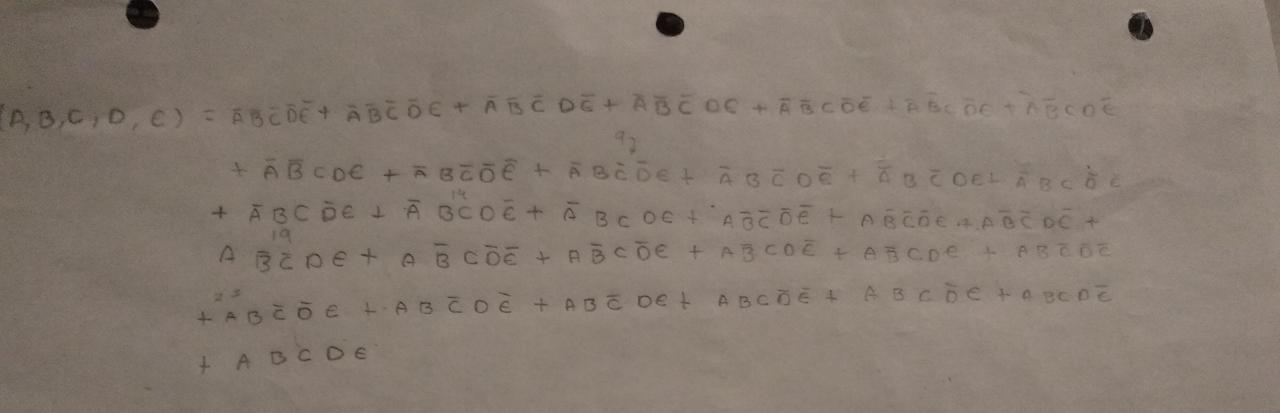 (A, B, C, D, E) = A̅B̅C̅D̅E̅ + A̅B̅C̅D̅E + A̅B̅C̅DE̅ + A̅B̅C̅DE + A̅B̅CD̅E̅ + A̅B̅CD̅E + A̅B̅CDE̅
+ A̅B̅CDE + A̅BC̅D̅E̅ + A̅BC̅D̅E + A̅BC̅DE̅ + A̅BC̅DE + A̅BCD̅E̅
+ A̅BCD̅E + A̅BCDE̅ + A̅BCDE + AB̅C̅D̅E̅ + AB̅C̅D̅E + AB̅C̅DE̅ +
19
AB̅C̅DE + AB̅CD̅E̅ + AB̅CD̅E + AB̅CDE̅ + AB̅CDE + ABC̅D̅E̅
+ ABC̅D̅E + ABC̅DE̅ + ABC̅DE + ABCD̅E̅ + ABCD̅E + ABCDE̅
+ ABCDE